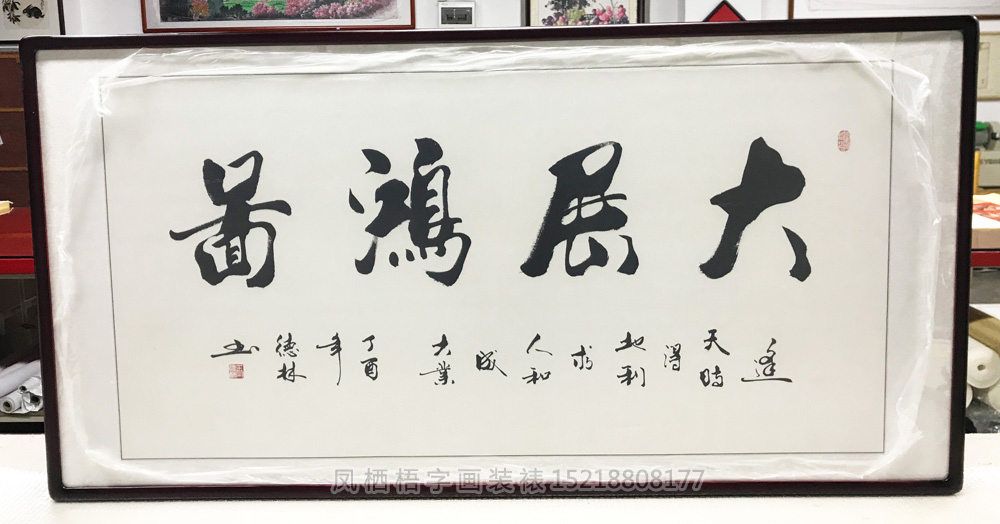 大展鸿啚
逢天時得地利求人和成大業
丁酉年德林书
凤栖梧字画装裱15218808177